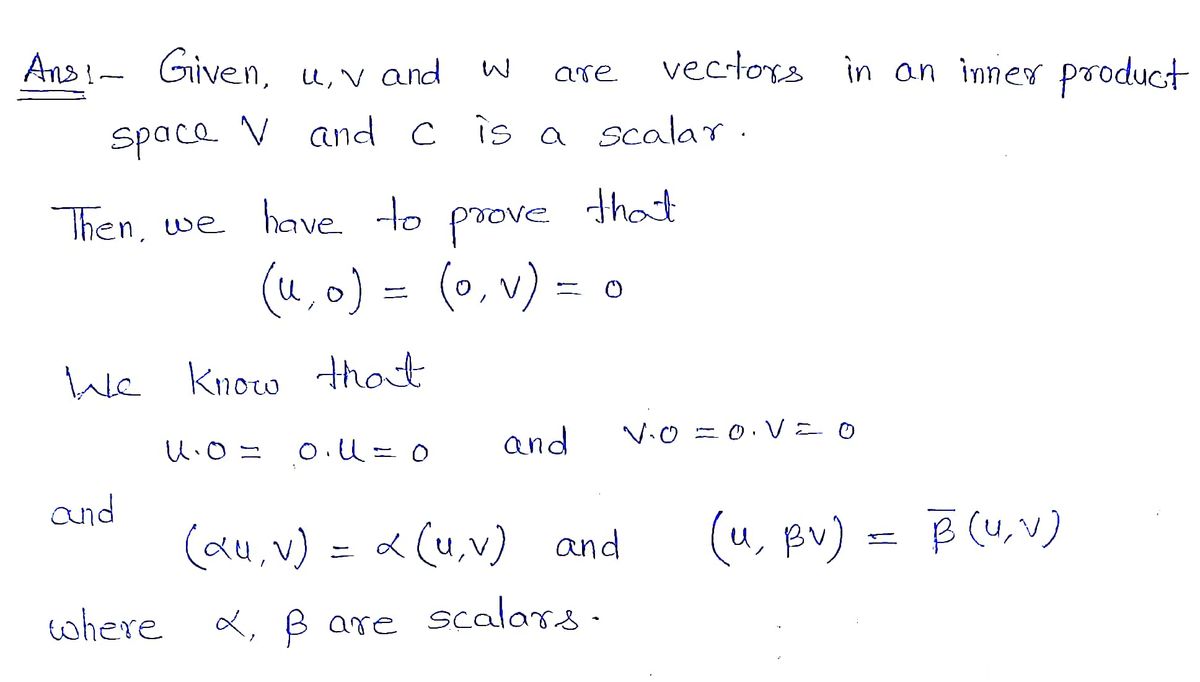 Ans:- Given, u, v and w are vectors in an inner product
space V and c is a scalar.
Then, we have to prove that
(u, 0) = (0, v) = 0
We know that
u.0 = 0.u = 0 and v.0 = 0.v = 0
and
(αu, v) = α (u,v) and (u, βv) = β̅ (u,v)
where α, β are scalars.